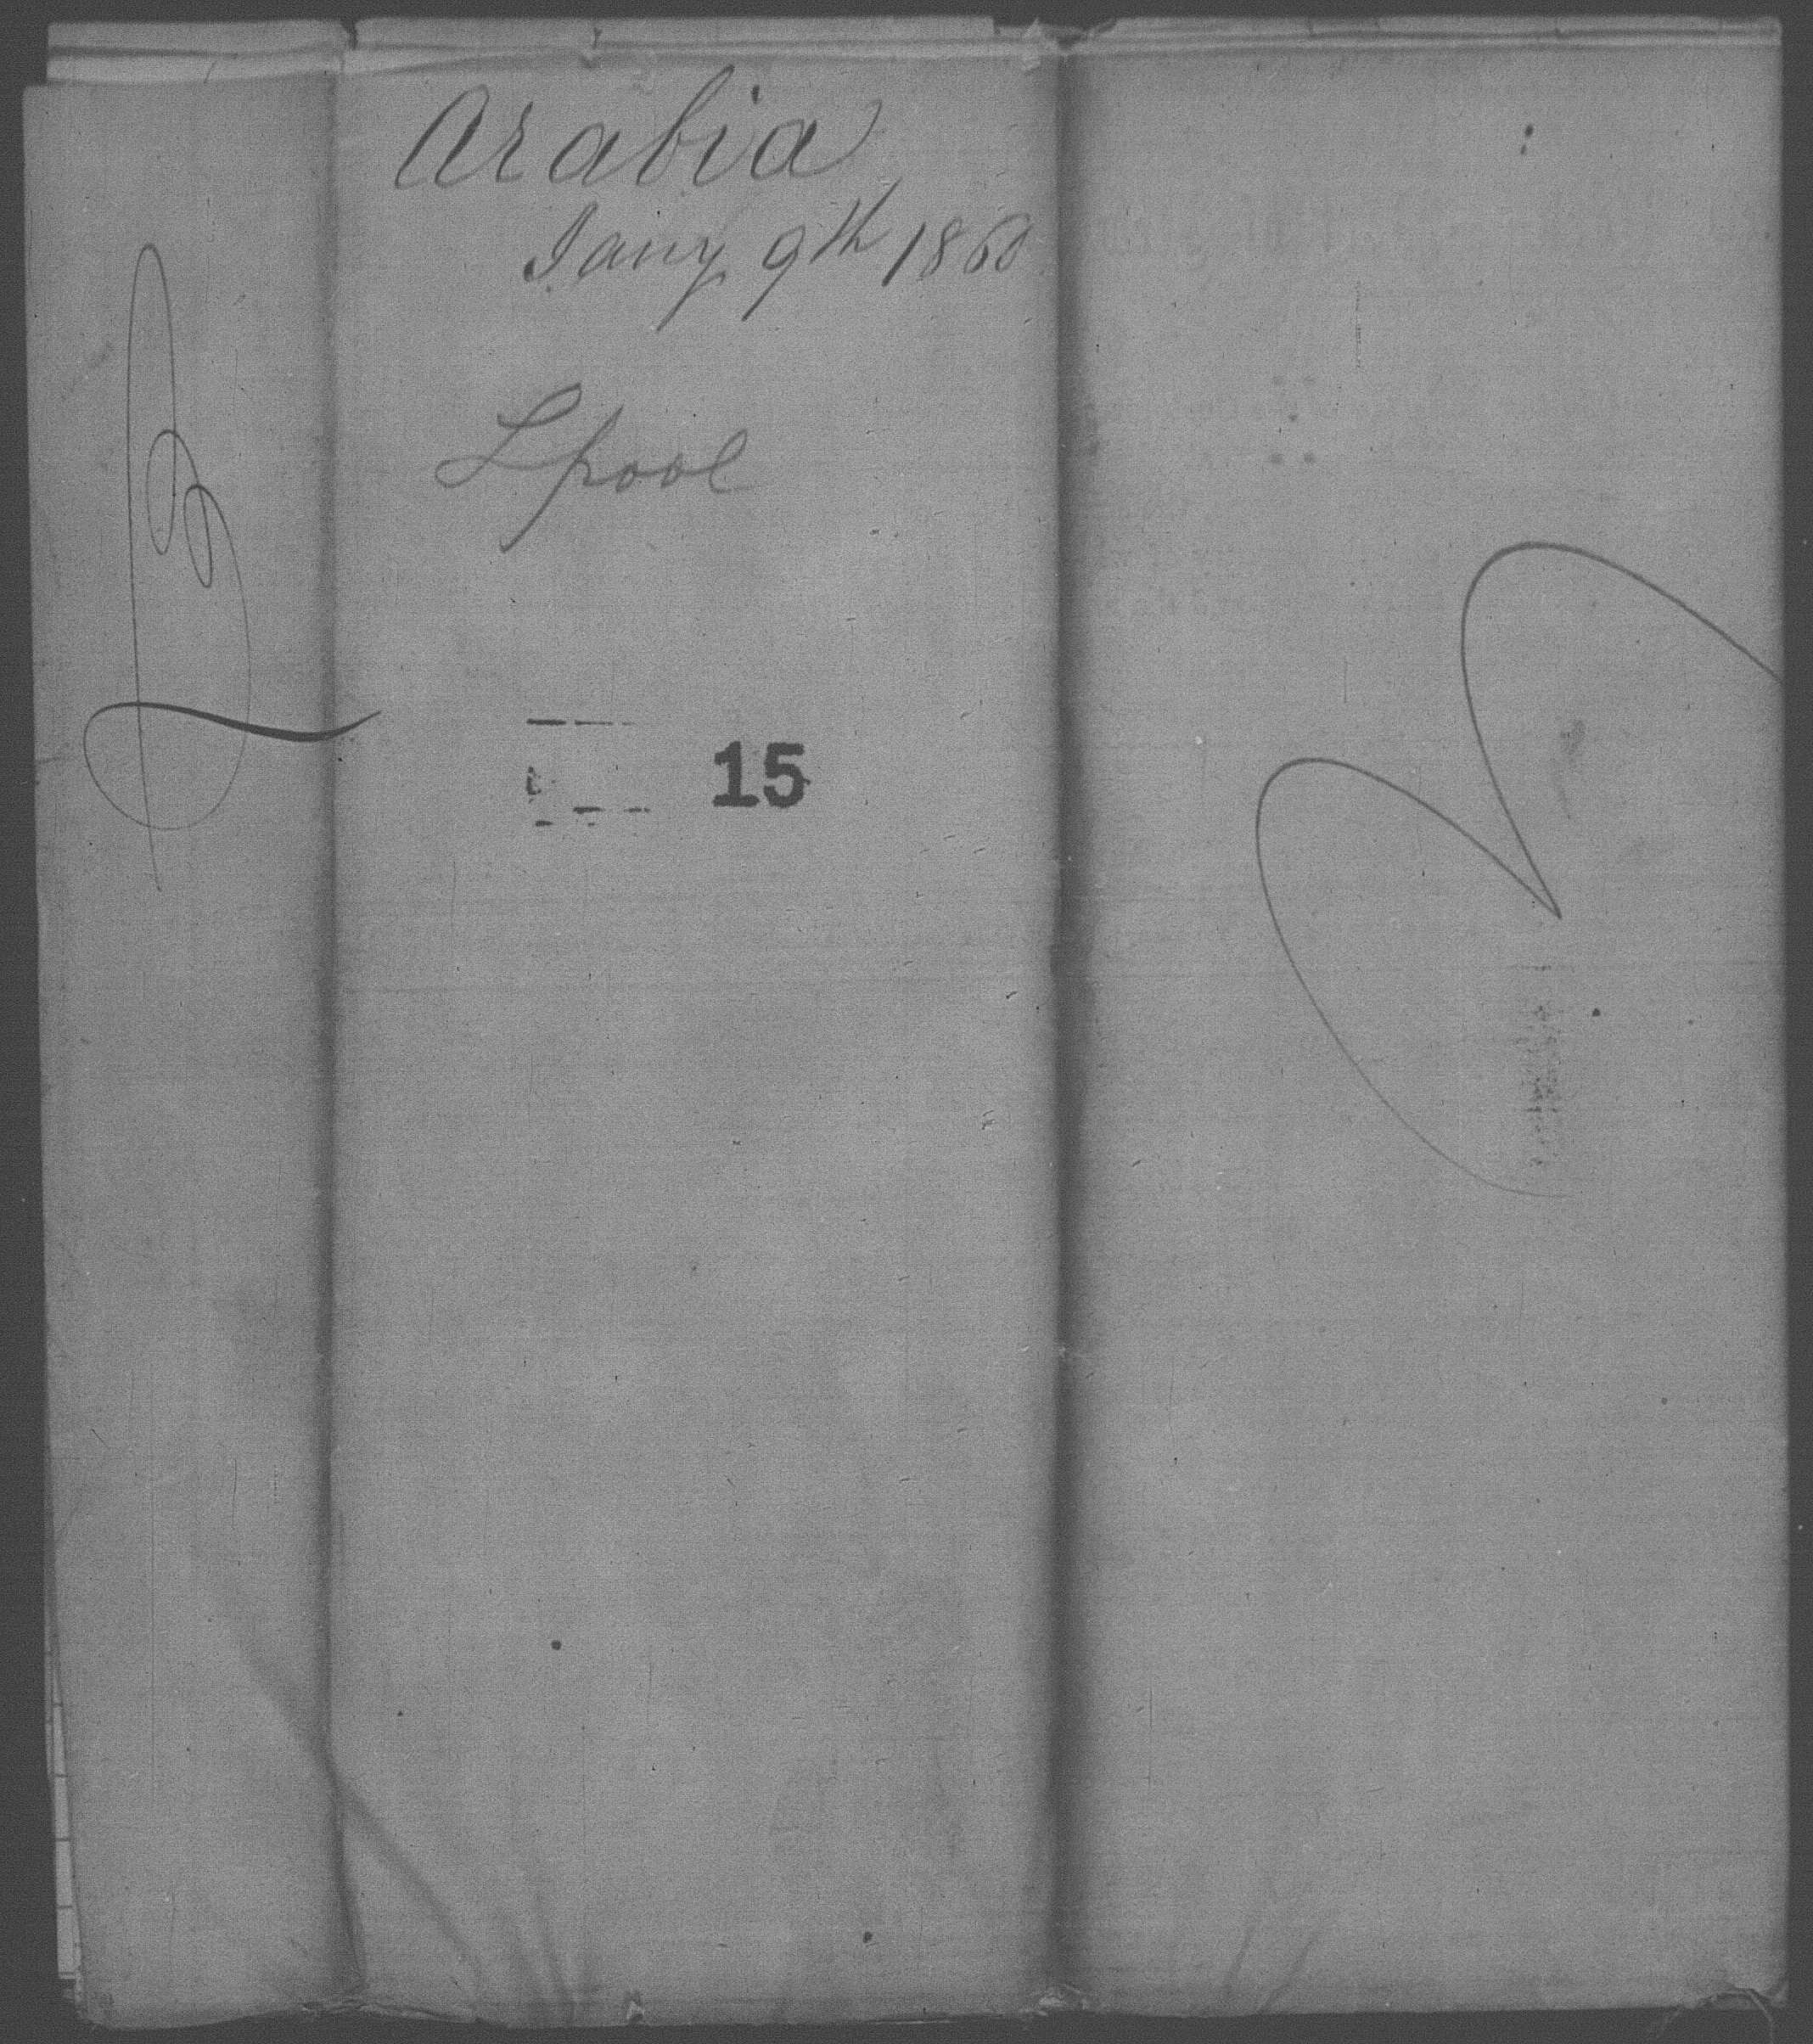 Arabia
Jany 9th 1860
Lpool
15